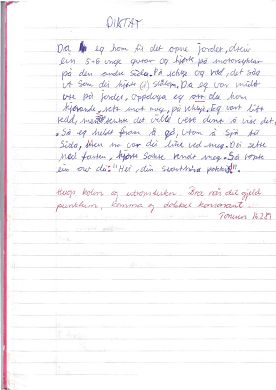 DIKTAT
Då eg kom til det opne jordet, dreiv
ein 5-6 unge gutar og kjørte på motorsyklar
på den andre sida. På skrye og
ut som dei kjørte i slalåm. Då eg var midt
ute på jordet, oppdaga eg at dei kom
kjørande, rett mot meg, på
redd, men tenkte det ville vere dumt å vise det,
så eg heldt fram å gå, utan å sjå til
sida, men no var dei like ved meg. Dei sette
ned farten, kjørte sakte rundt meg. Så ropte
ein av dei: "Hei, din svarthåra pakkis!"
Husk kolon og utropsteikn. Bra når det gjeld
punktum, komma og dobbel konsonant.